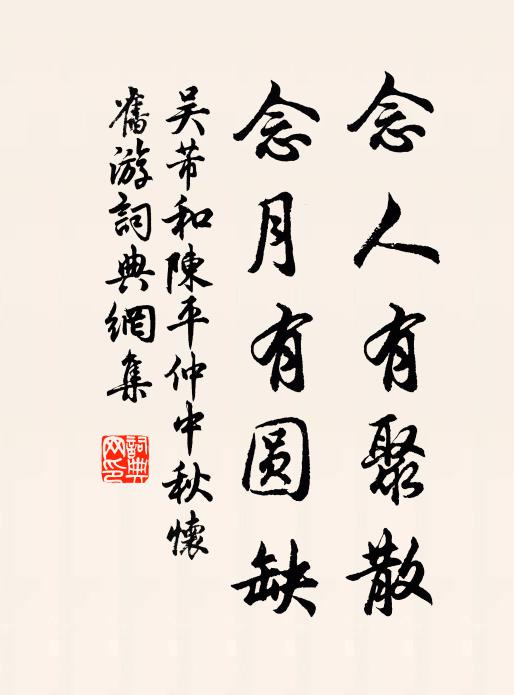 念人有聚散
念月有圆缺
吴芾和陳平仲中秋懷
舊游詞典網集
詞典网印